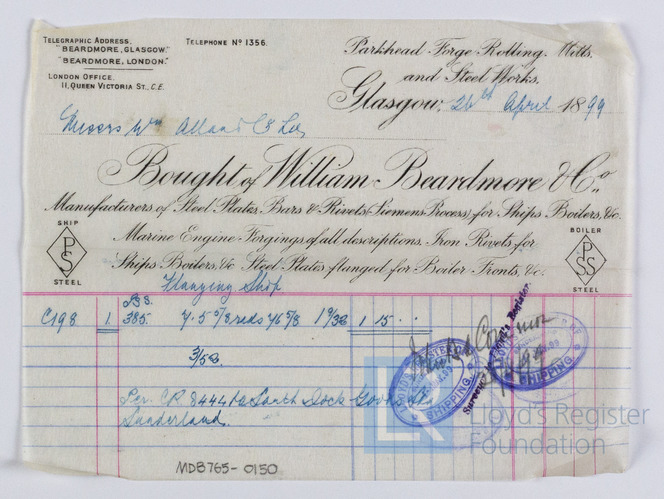 TELEGRAPHIC ADDRESS,
"BEARDMORE, GLASGOW."
"BEARDMORE, LONDON."
LONDON OFFICE.
11, QUEEN VICTORIA ST., E.C.
TELEPHONE Nº 1356.
Parkhead Forge Rolling Mills,
and Steel Works,
Glasgow, 26th April 1899
Messrs Wm Allan & Co Ltd
Bought of William Beardmore & Co.,
Manufacturers of Steel Plates, Bars & Rivets (Siemens Process) for Ships Boilers, &c.
Marine Engine Forgings of all descriptions. Iron Rivets for
Ships Boilers, &c. Steel Plates flanged for Boiler Fronts, &c.
SHIP
PSS
STEEL
BOILER
PSS
STEEL
Flanging Shop
C198 1 385. 4.5 5/8 46 5/8 1 15 . .
3/5
Per CR 8444 to South Dock
Sunderland.
Lloyd's Register
SHIPPING
SHIPPING
Lloyd's Register
Foundation
MDB765-0150